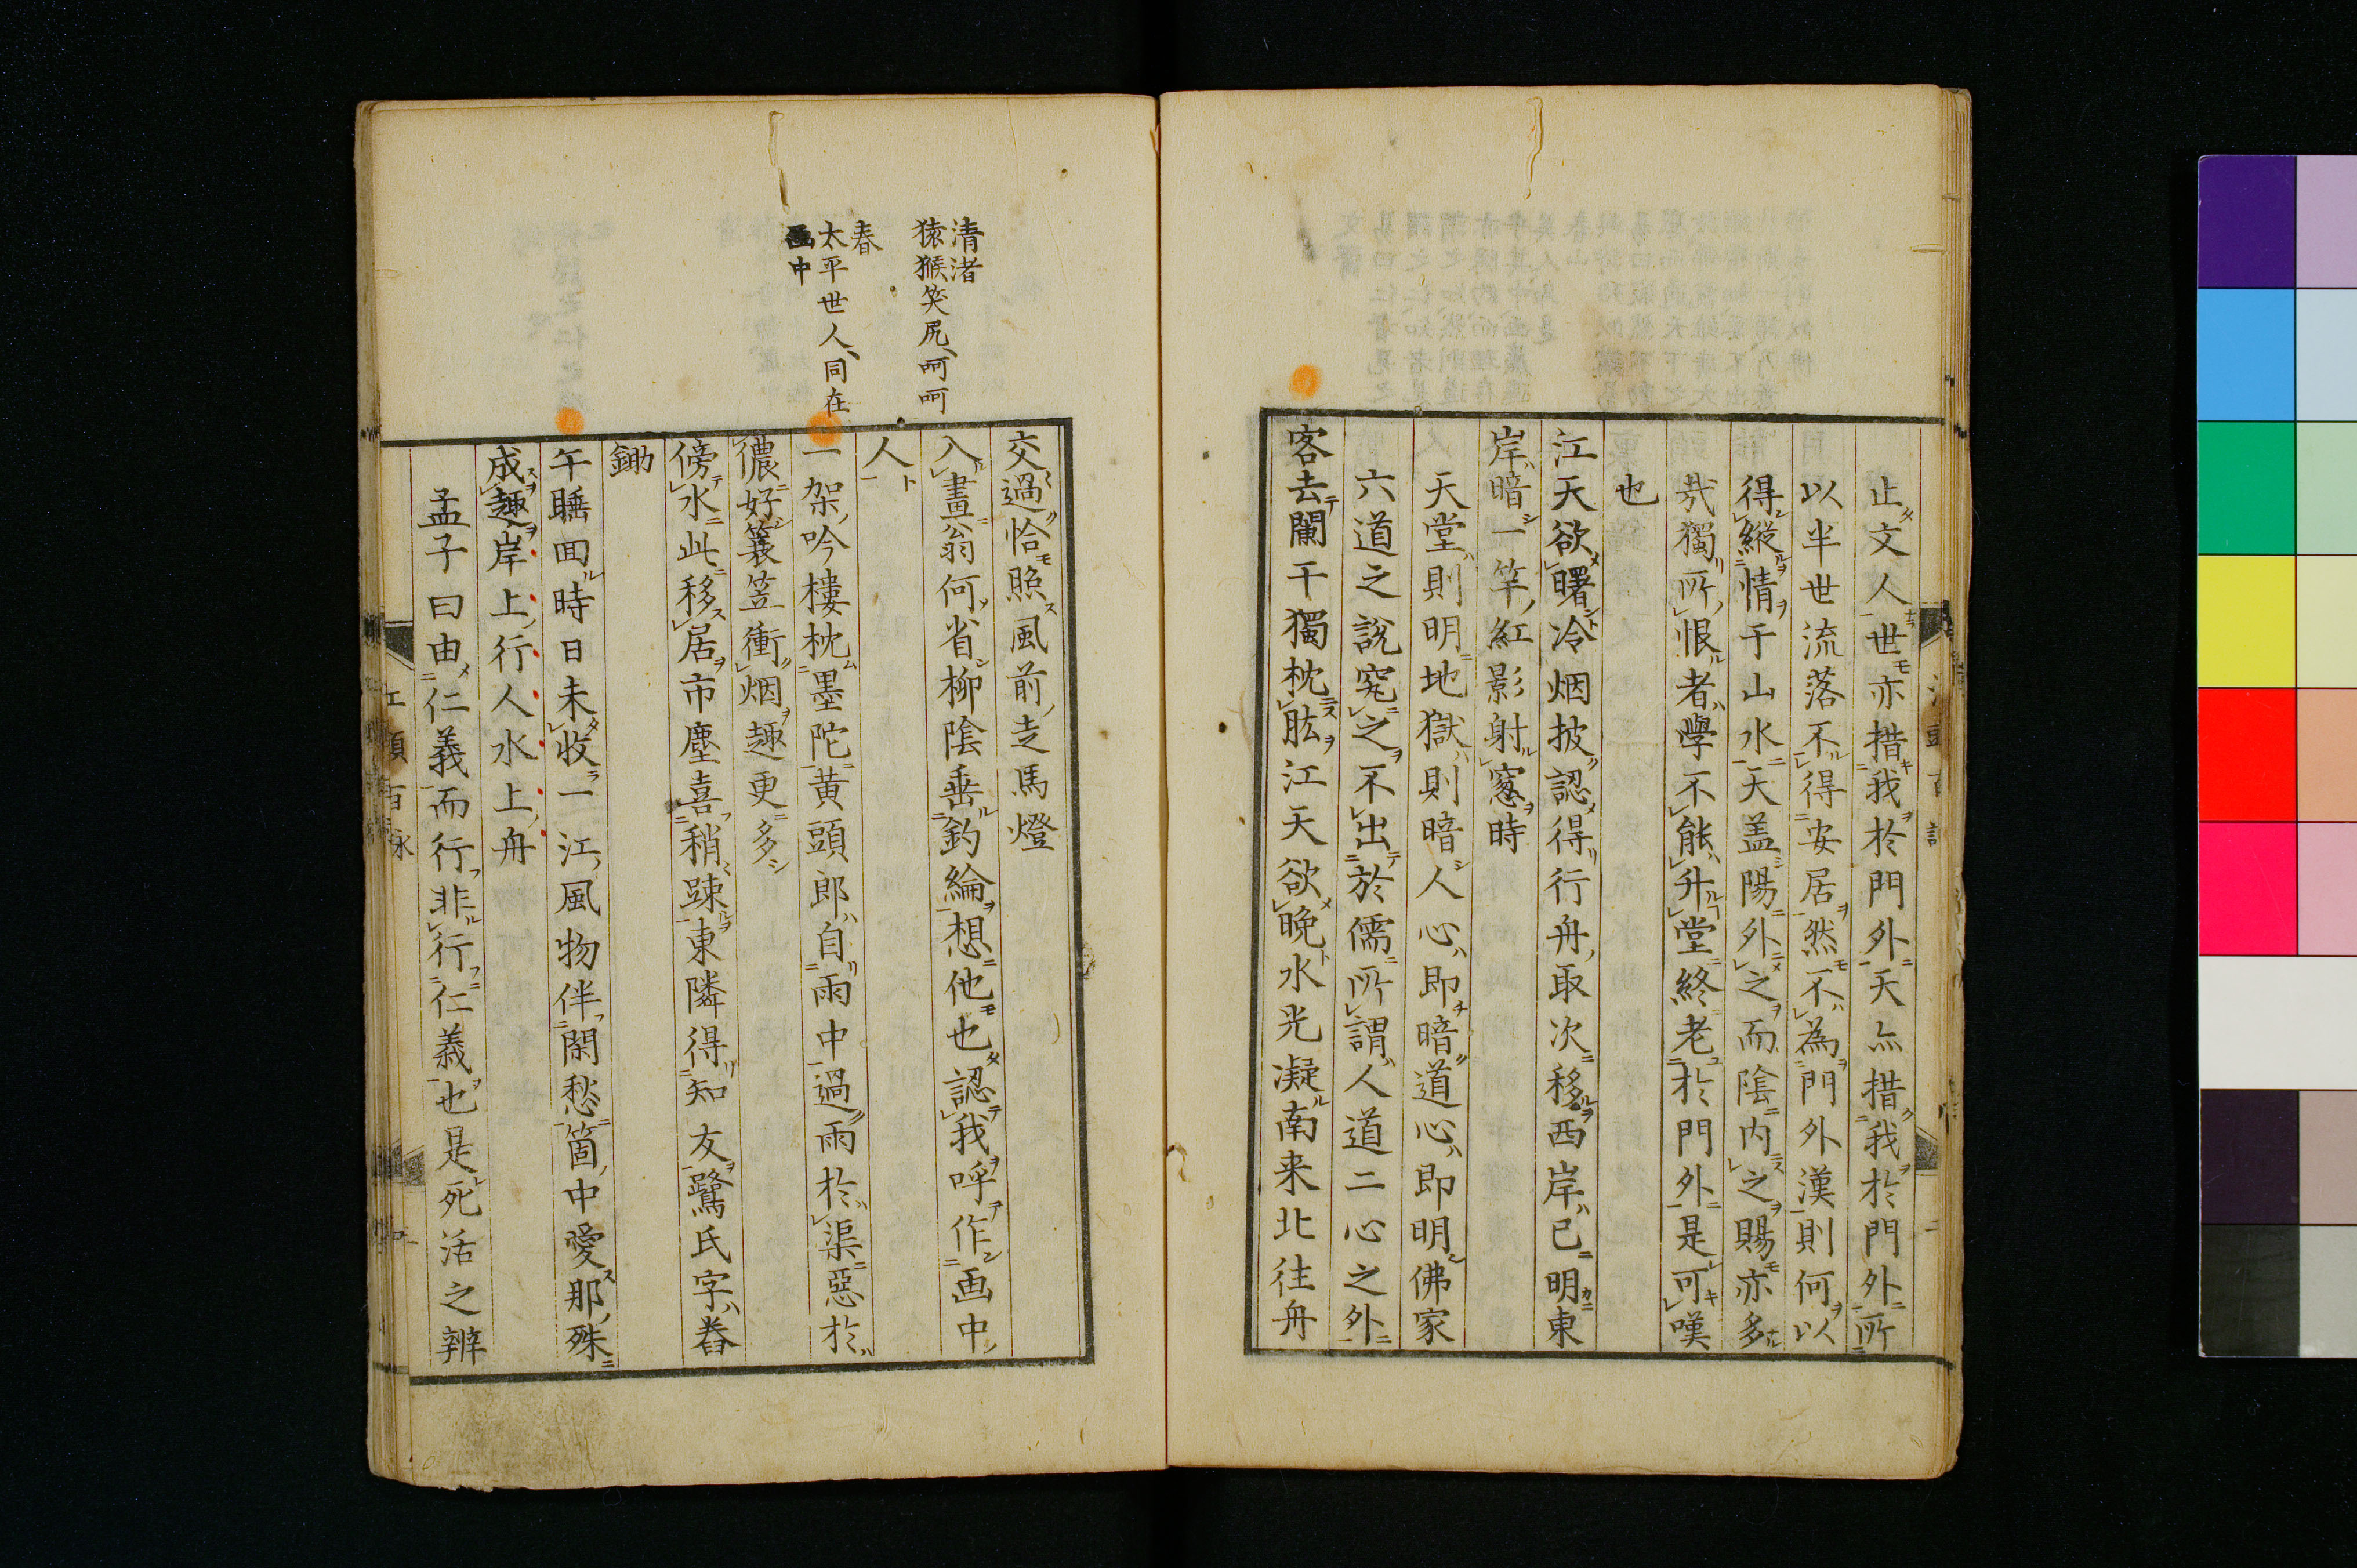 止文人世亦措我於門外天亦措我於門外所
以半世流落不得安居然不為門外漢則何以
得縱情于山水天盖陽外之而陰内之賜亦多
哉獨所恨者學不能升堂終老於門外是可嘆
也
江天欲曙冷烟披認得行舟取次移西岸已明東
岸暗一竿紅影射窓時
天堂則明地獄則暗人心即暗道心即明佛家
六道之說究之不出於儒所謂人道二心之外
客去闌干獨枕肱江天欲晩水光凝南来北往舟
清渚
猿猴笑尻呵呵
春
太平世人同在
画中
交過恰照風前走馬燈
入畫翁何省柳陰垂釣綸想他也認我呼作画中
人
一架吟樓枕墨陀黄頭郎自雨中過雨於渠惡於
儂好簑笠衝烟趣更多
傍水此移居市塵喜稍踈東隣得知友鷺氏字舂
鋤
午睡回時日未收一江風物伴閑愁箇中愛那殊
成趣岸上行人水上舟
孟子曰由仁義而行非行仁義也是死活之辨
江頭百詠